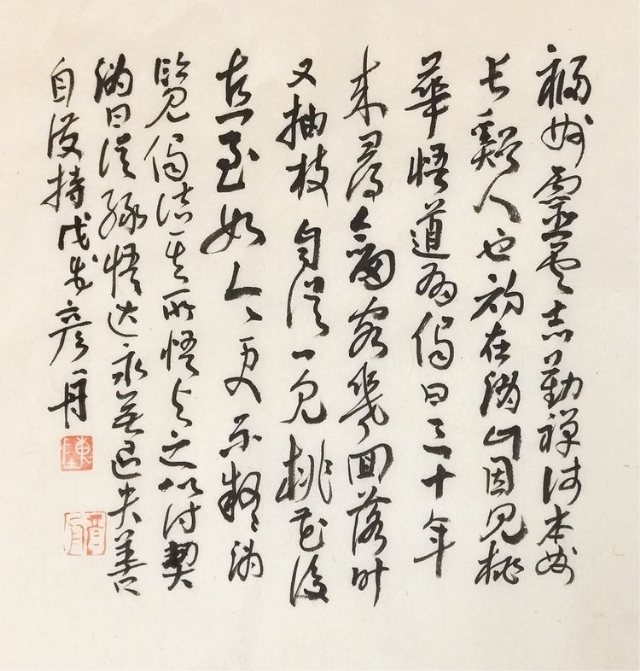 福州靈雲志勤禪師本州
長谿人也初在溈山因見桃
華悟道有偈曰三十年
來尋劍客幾回落叶
又抽枝自從一見桃花後
直至如今更不疑溈
覽偈詰其所悟与之符契
溈曰從緣悟达永無退失善
自護持戊戌彥
陳